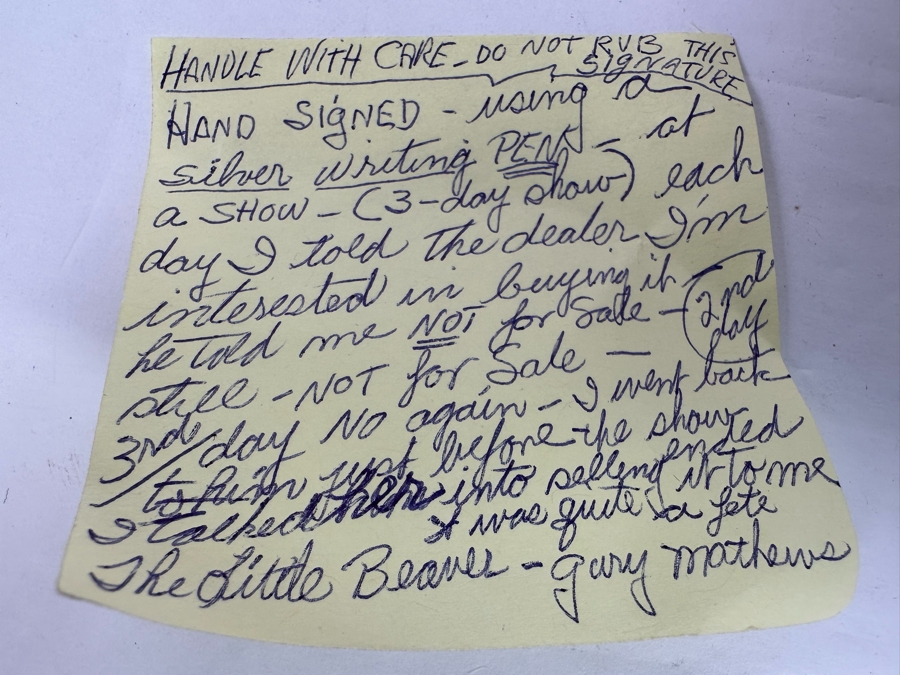 HANDLE WITH CARE - DO NOT RUB THIS
SIGNATURE
HAND SIGNED - using a
silver writing PEN - at
a SHOW - (3-day show) each
day I told the dealer I'm
interested in buying it
he told me NOT for Sale - (2nd
day
still - NOT for Sale -
3rd/day NO again - I went back
to him just before the show
ended
I talked him into selling it to me
It was quite a fete
The Little Beaver - Gary Mathews